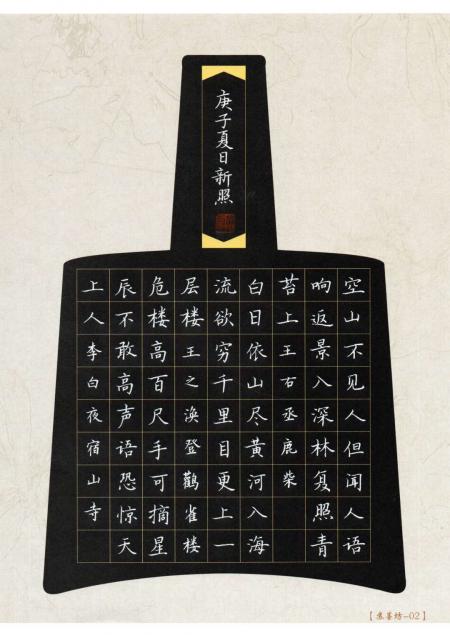 庚子夏日新照
空山不见人但闻人语
响返景入深林复照青
苔上王右丞鹿柴
白日依山尽黄河入海
流欲穷千里目更上一
层楼王之涣登鹳雀楼
危楼高百尺手可摘星
辰不敢高声语恐惊天
上人李白夜宿山寺
【煮墨坊-02】